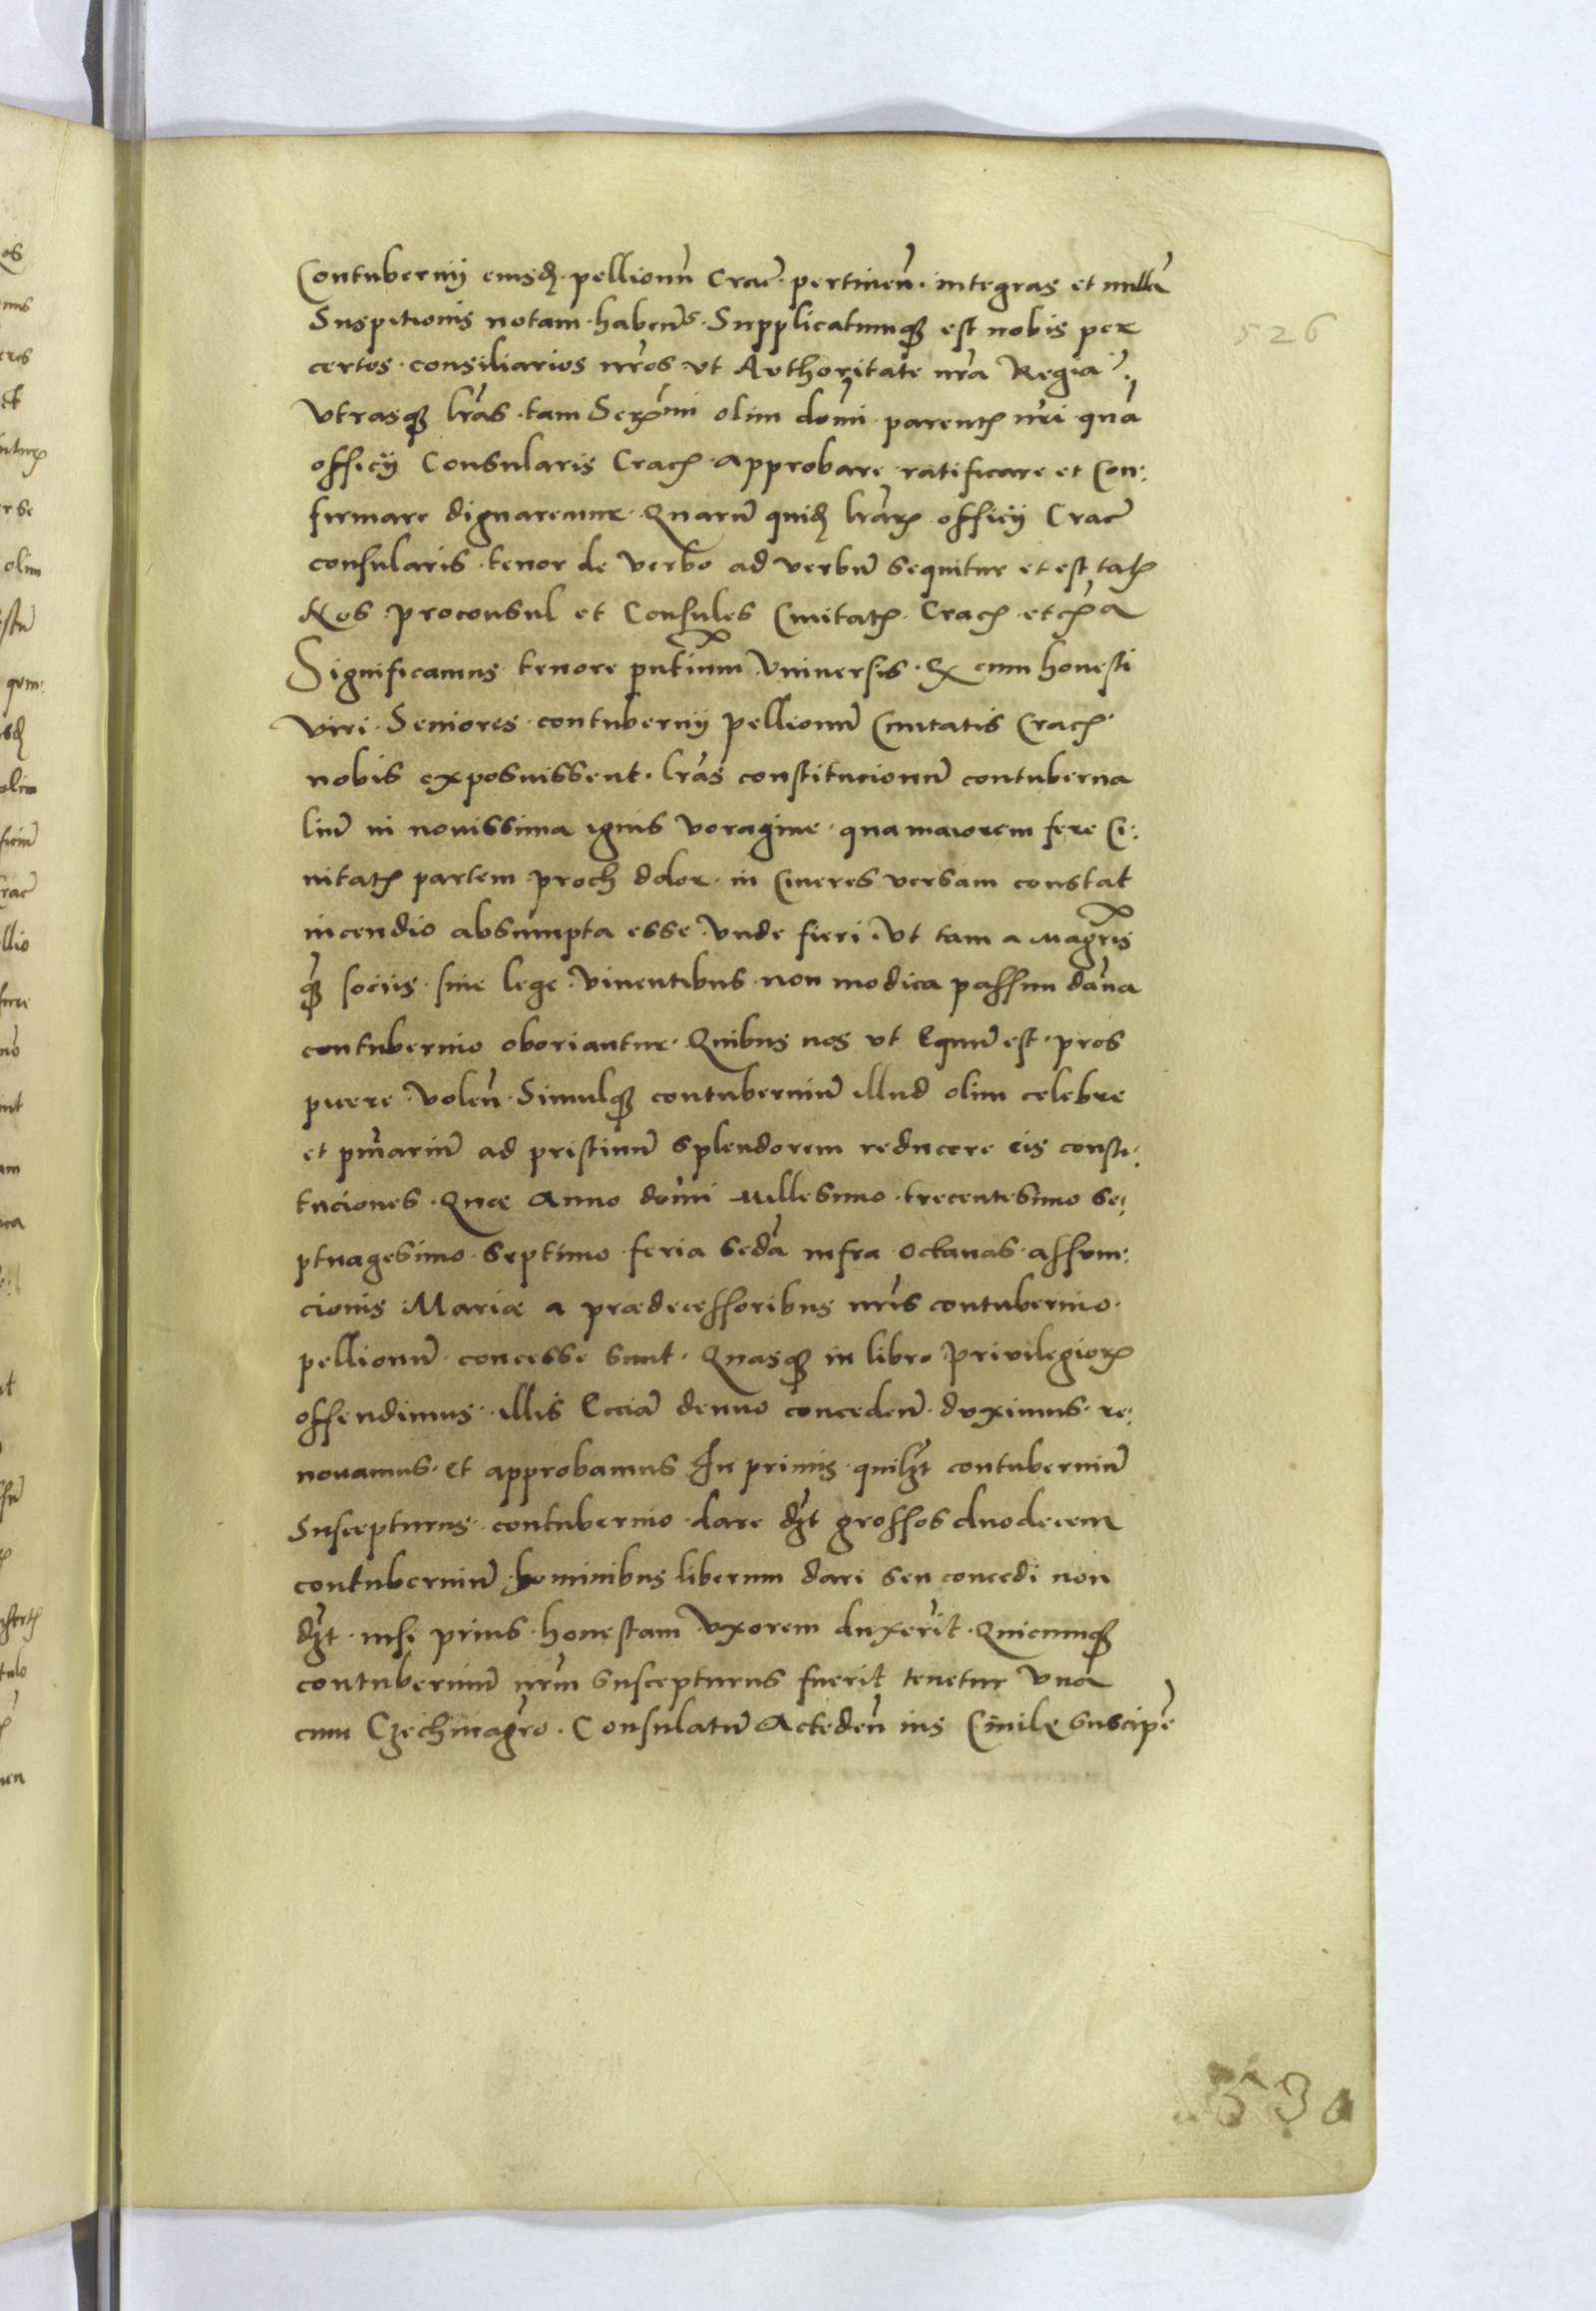 Contubernij eiusdẽ pellionũ Cracẽ pertineñ. integras et nullã
Suspitionis notam habeñs. Supplicatumq est nobis per
certos consiliarios nr̃os vt Authoritate nr̃a Regia
vtrasq lr̃as tam Serẽmi olim dom̃i parentꝭ nr̃i quã
officij Consularis Cracꝭ approbare ratificare et Con:
firmare dignaremur. Quarũ quidẽ lr̃arꝝ officij Cracẽ
consularis tenor de verbo ad verbũ sequitur et est talꝭ
Nos proconsul et Consules Ciuitatꝭ Cracꝭ etcꝭa
Significamus tenore pñtium vniuersis. Qꝫ cum honesti
viri Seniores contubernij pellionũ Ciuitatis Cracꝭ
nobis exposuissent. lr̃as constitucionũ contuberna
liũ in nouissima ignis voragine qua maiorem fere Ci:
uitatꝭ partem proch dolor in Cineres versam constat
incendio absumpta esse vnde fieri vt tam a magr̃is
qꝫ sociis sine lege viuentibus non modica passim dañna
contubernio oboriantur. Quibus nos vt Equũ est pros
picere voleñ Simulq contuberniũ illud olim celebre
et pm̃ariũ ad pristinũ splendorem reducere eis consti:
tuciones. Quæ Anno dom̃i Millesimo trecentesimo se:
ptuagesimo septimo feria secdã infra octauas assum:
cionis Mariæ a prædecessoribus nr̃is contubernio
pellionũ concesse sunt. Quasq in libro priuilegiorꝝ
offendimus illis Eciã denuo concedeñ duximus re:
nouamus et approbamus In primis quilꝫt contuberniũ
Suscepturus contubernio dare dꝫt grossos duodecem
contuberniũ hominibus liberum dari seu concedi non
dꝫt nisi prius honestam vxorem duxerit. Quicumq
contuberniũ nr̃m suscepturus fuerit tenetur vna
cum Czechmagr̃o. Consulatũ Accedeñ ius Ciuile suscipẽ
526
530